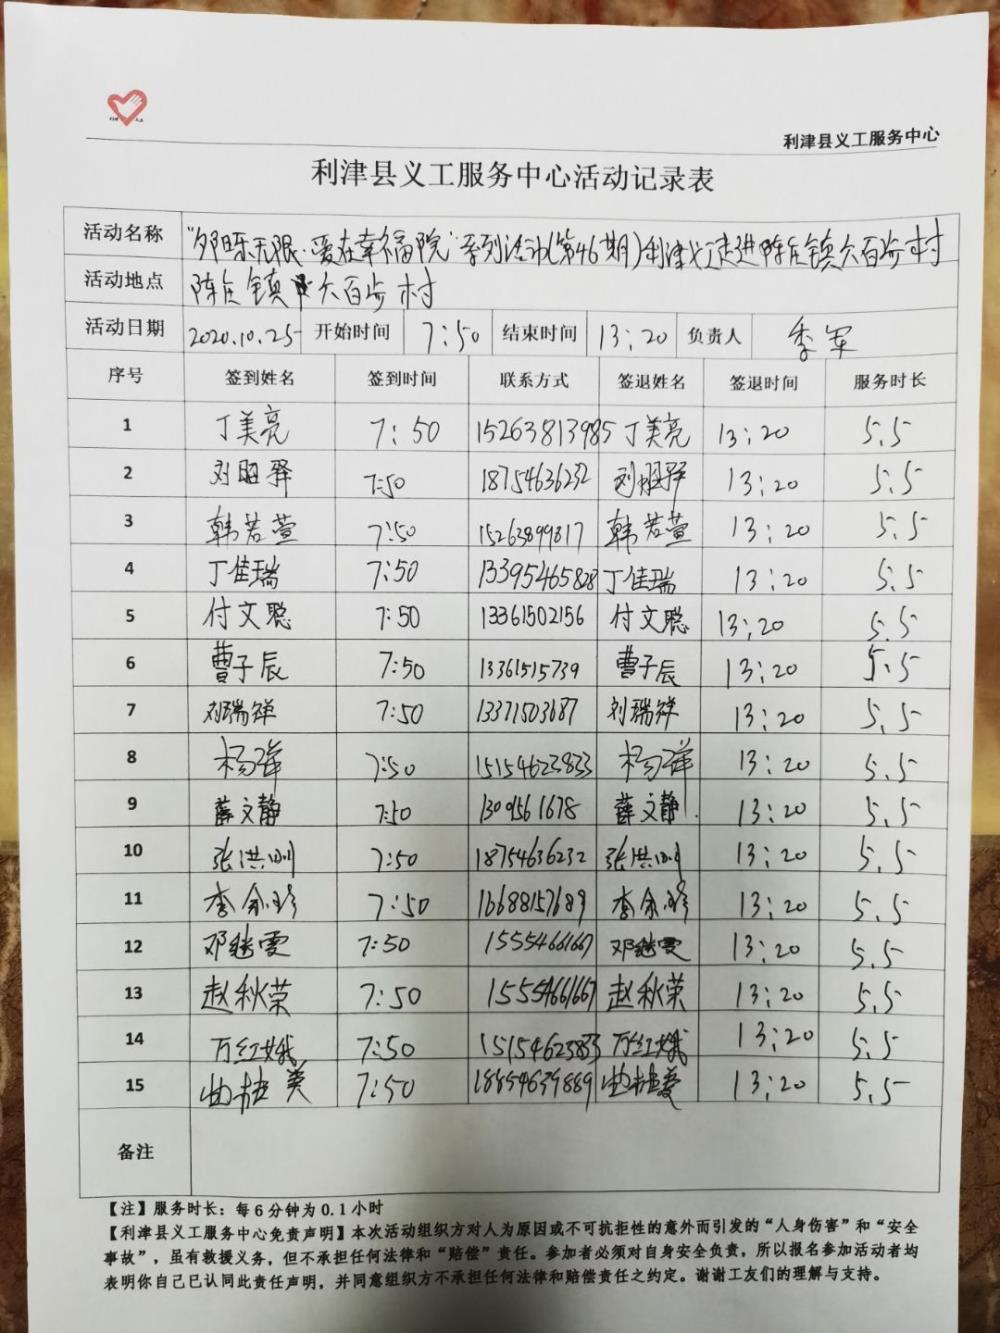 利津县义工服务中心
利津县义工服务中心活动记录表
活动名称 "夕阳无限·爱在幸福院"系列活动(第46期)利津义工走进陈庄镇六百步村
活动地点 陈庄镇六百步村
活动日期 2020.10.25 开始时间 7:50 结束时间 13:20 负责人 季军
序号 签到姓名 签到时间 联系方式 签退姓名 签退时间 服务时长
1 丁美亮 7:50 15263813985 丁美亮 13:20 5.5
2 刘昭驿 7:50 18754636232 刘昭驿 13:20 5.5
3 韩若萱 7:50 15263899817 韩若萱 13:20 5.5
4 丁佳瑞 7:50 13395465828 丁佳瑞 13:20 5.5
5 付文聪 7:50 13361502156 付文聪 13:20 5.5
6 曹子辰 7:50 13361515739 曹子辰 13:20 5.5
7 刘瑞祥 7:50 13371503687 刘瑞祥 13:20 5.5
8 杨萍 7:50 15154623833 杨萍 13:20 5.5
9 薛文静 7:50 薛文静 13:20 5.5
10 张洪 7:50 18754636232 张洪 13:20 5.5
11 李 7:50 16688157689 李 13:20 5.5
12 邓继雯 7:50 1555466167 邓继雯 13:20 5.5
13 赵秋荣 7:50 15554661667 赵秋荣 13:20 5.5
14 万红娥 7:50 万红娥 13:20 5.5
15 曲桂美 7:50 18854639889 曲桂美 13:20 5.5
备注
【注】服务时长：每6分钟为0.1小时
【利津县义工服务中心免责声明】本次活动组织方对人为原因或不可抗拒性的意外而引发的“人身伤害”和“安全
事故”，虽有救援义务，但不承担任何法律和“赔偿”责任。参加者必须对自身安全负责，所以报名参加活动者均
表明你自己已认同此责任声明，并同意组织方不承担任何法律和赔偿责任之约定。谢谢工友们的理解与支持。